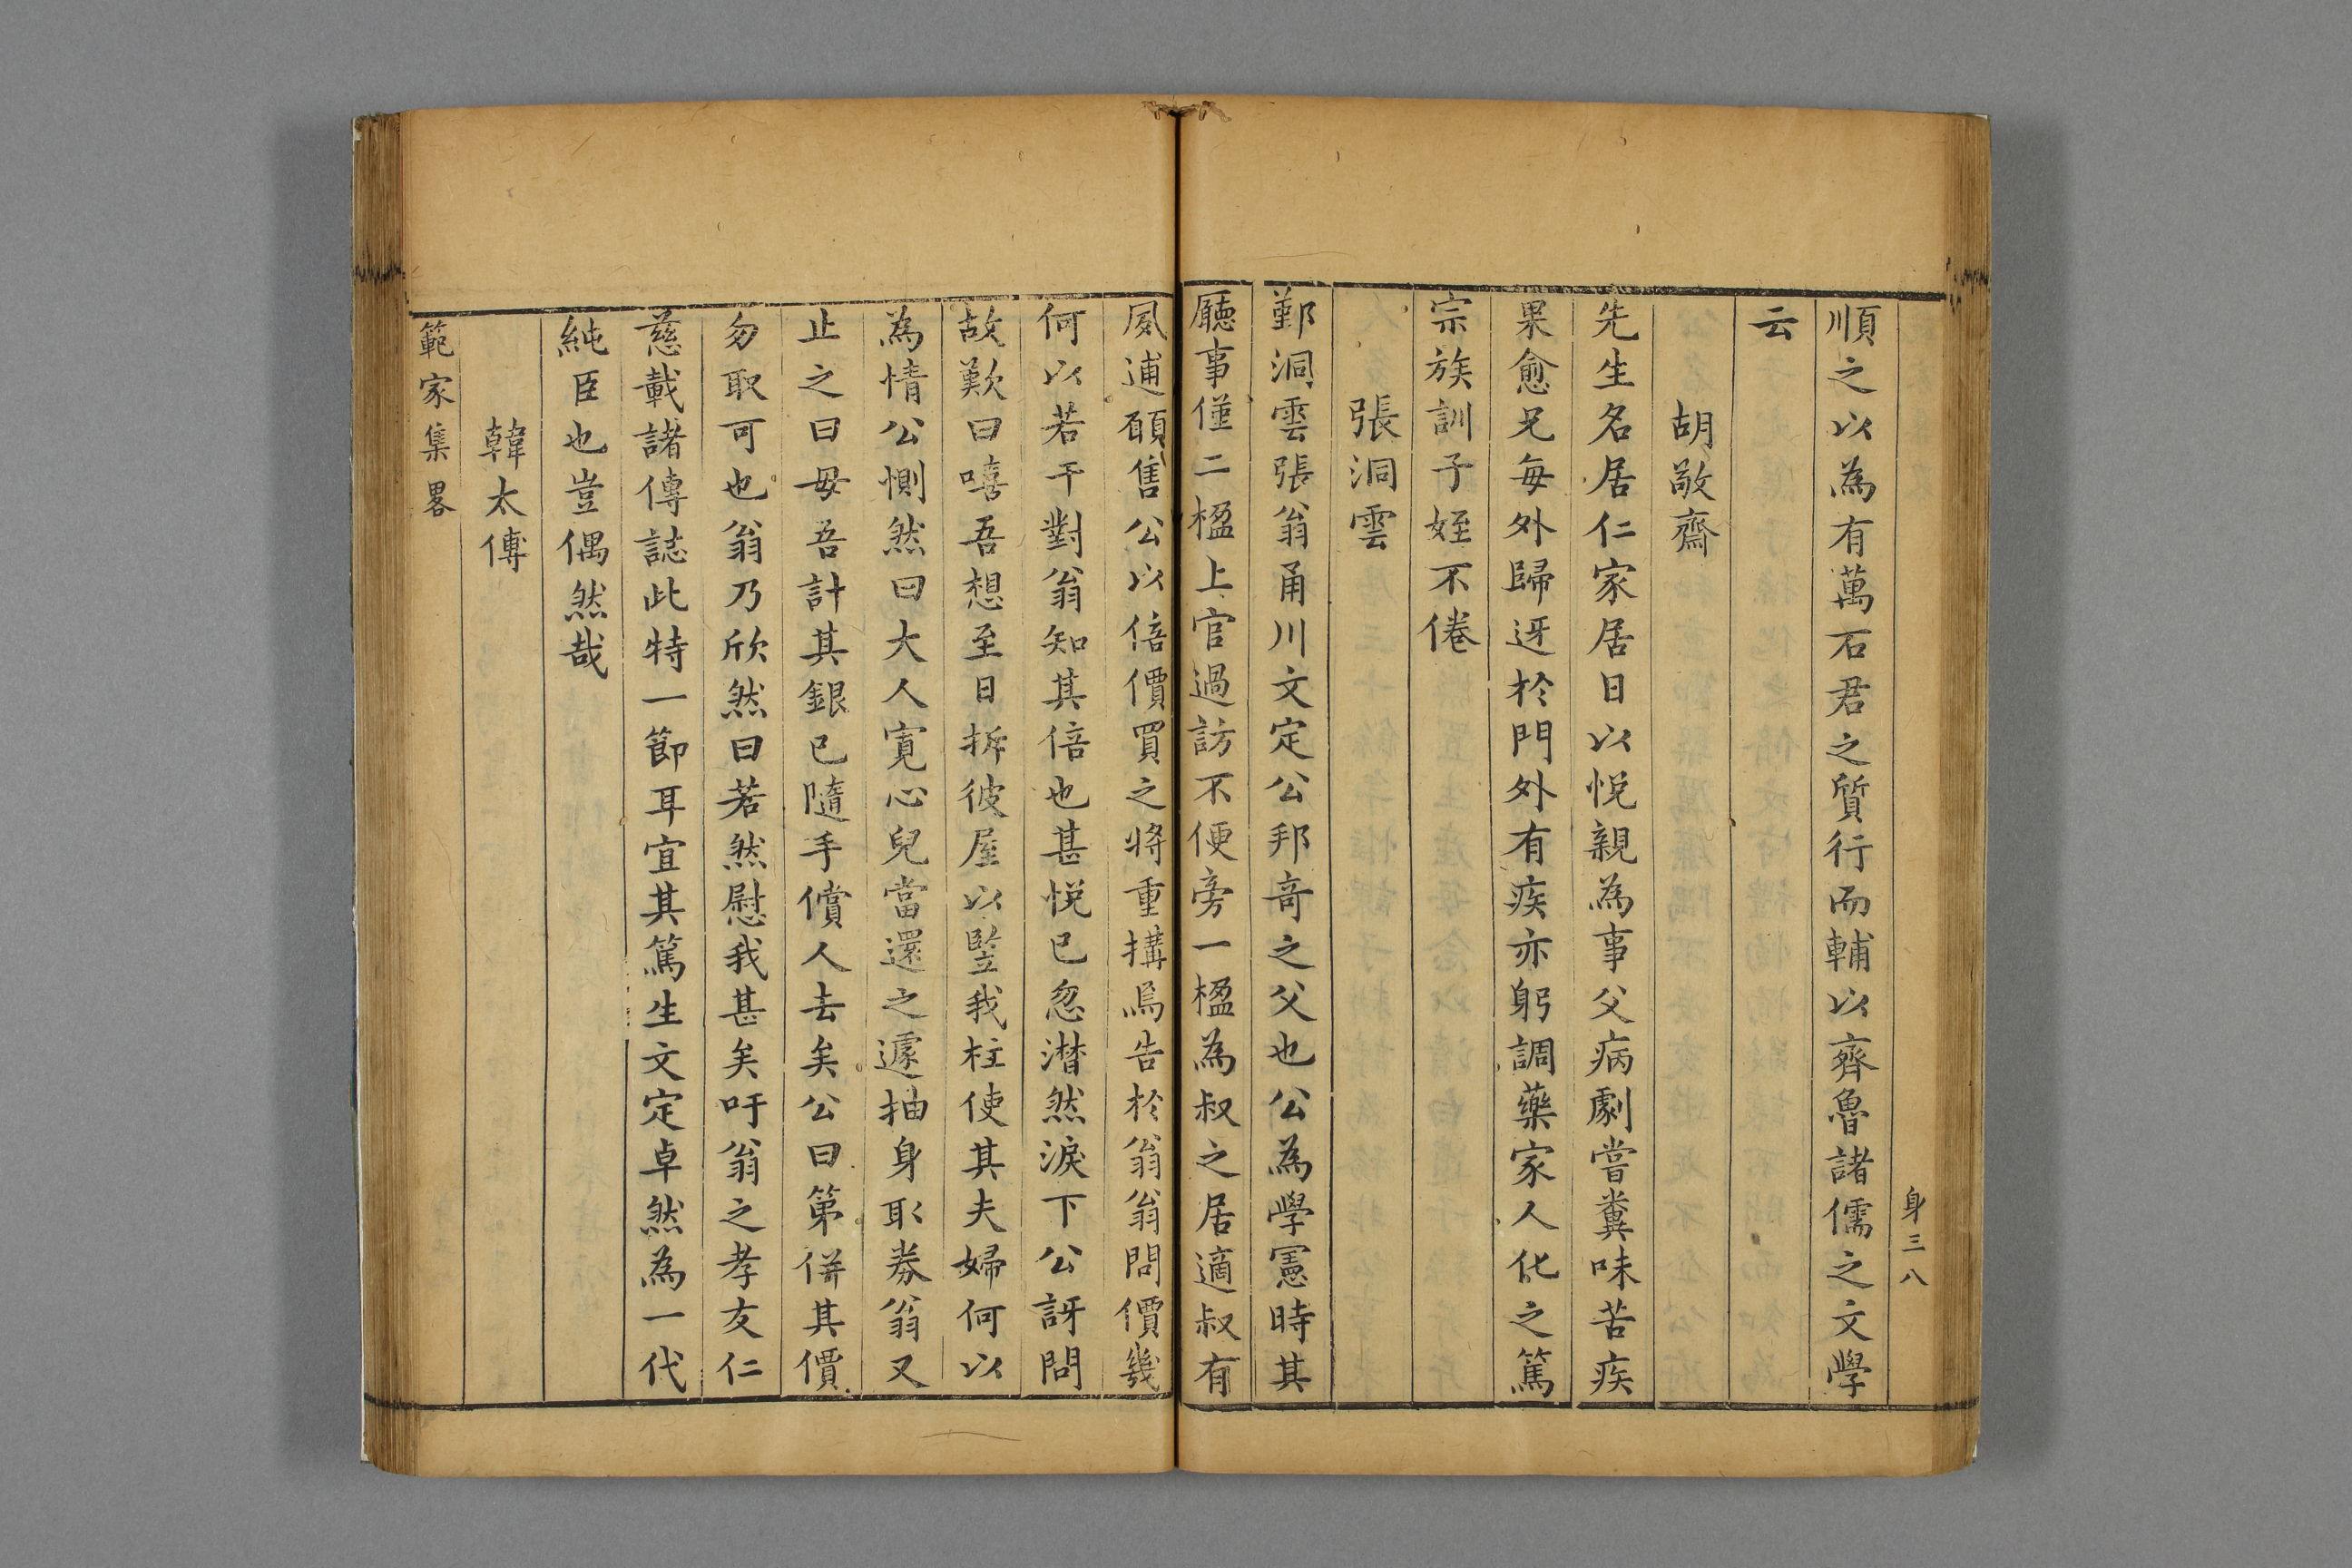 身三八
順之以為有萬石君之質行而輔以齊魯諸儒之文學
云
胡敬齋
先生名居仁家居日以悅親為事父病劇嘗糞味苦疾
果愈兄每外歸迓於門外有疾亦躬調藥家人化之篤
宗族訓子姪不倦
張洞雲
鄞洞雲張翁甬川文定公邦竒之父也公為學憲時其
廳事僅二楹上官過訪不便旁一楹為叔之居適叔有
夙逋願售公以倍價買之將重搆焉告於翁翁問價幾
何以若干對翁知其倍也甚悅已忽潸然淚下公訝問
故歎曰嘻吾想至日拆彼屋以豎我柱使其夫婦何以
為情公惻然曰大人寛心兒當還之遽抽身取券翁又
止之曰毋吾計其銀已隨手償人去矣公曰第併其價
勿取可也翁乃欣然曰若然慰我甚矣吁翁之孝友仁
慈載諸傳誌此特一節耳宜其篤生文定卓然為一代
純臣也豈偶然哉
韓太傅
範家集畧